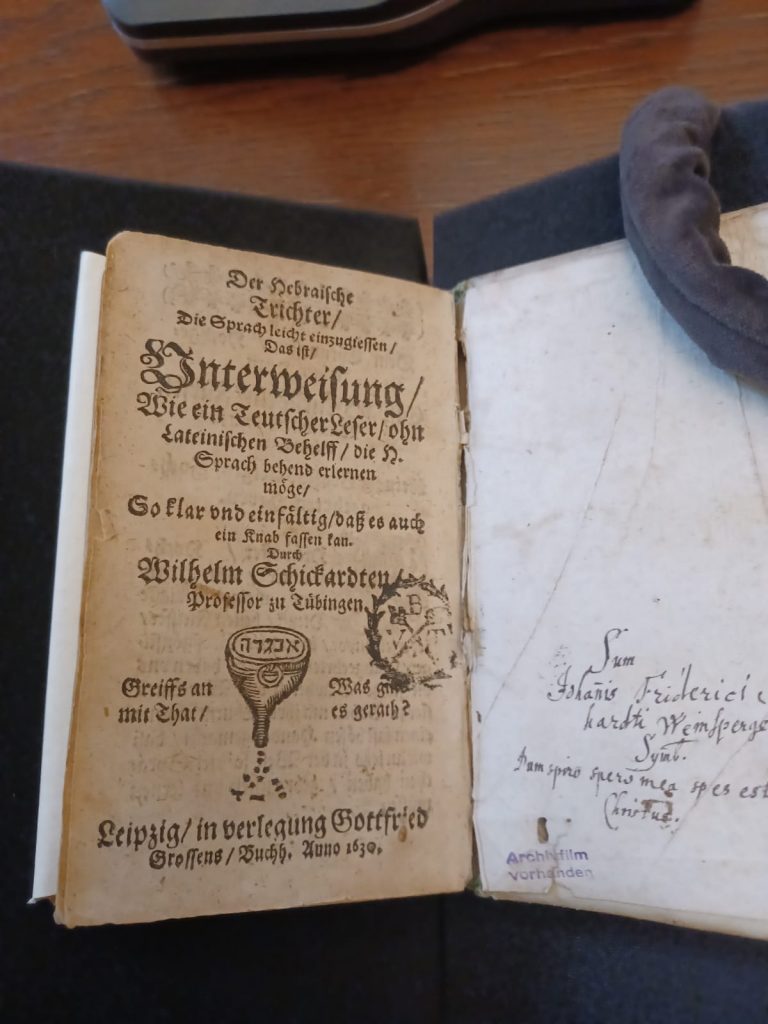 Der Hebraische
Trichter/
Die Sprach leicht einzugiessen/
Das ist/
Vnterweisung/
Wie ein Teutscher Leser/ ohn
Lateinischen Behelff/ die H.
Sprach behend erlernen
möge/
So klar vnd einfältig/ daß es auch
ein Knab fassen kan.
Durch
Wilhelm Schickardten/
Professor zu Tübingen
Greiffs an
mit That/
Was
es gerath?
Leipzig/ in verlegung Gottfried
Grossens/ Buchh. Anno 1630.
Sum
Johañis Friderici
hardti
Symb.
Dum spiro spero mea spes est
Christus.
Archivfilm
vorhanden